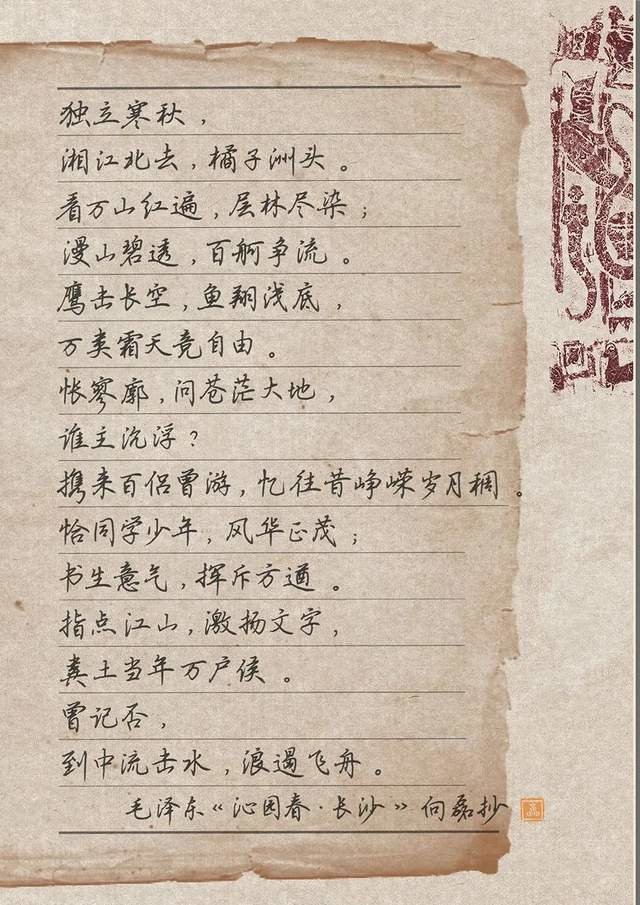 独立寒秋，
湘江北去，橘子洲头。
看万山红遍，层林尽染；
漫山碧透，百舸争流。
鹰击长空，鱼翔浅底，
万类霜天竞自由。
怅寥廓，问苍茫大地，
谁主沉浮？
携来百侣曾游，忆往昔峥嵘岁月稠。
恰同学少年，风华正茂；
书生意气，挥斥方遒。
指点江山，激扬文字，
粪土当年万户侯。
曾记否，
到中流击水，浪遏飞舟。
毛泽东《沁园春·长沙》向磊抄